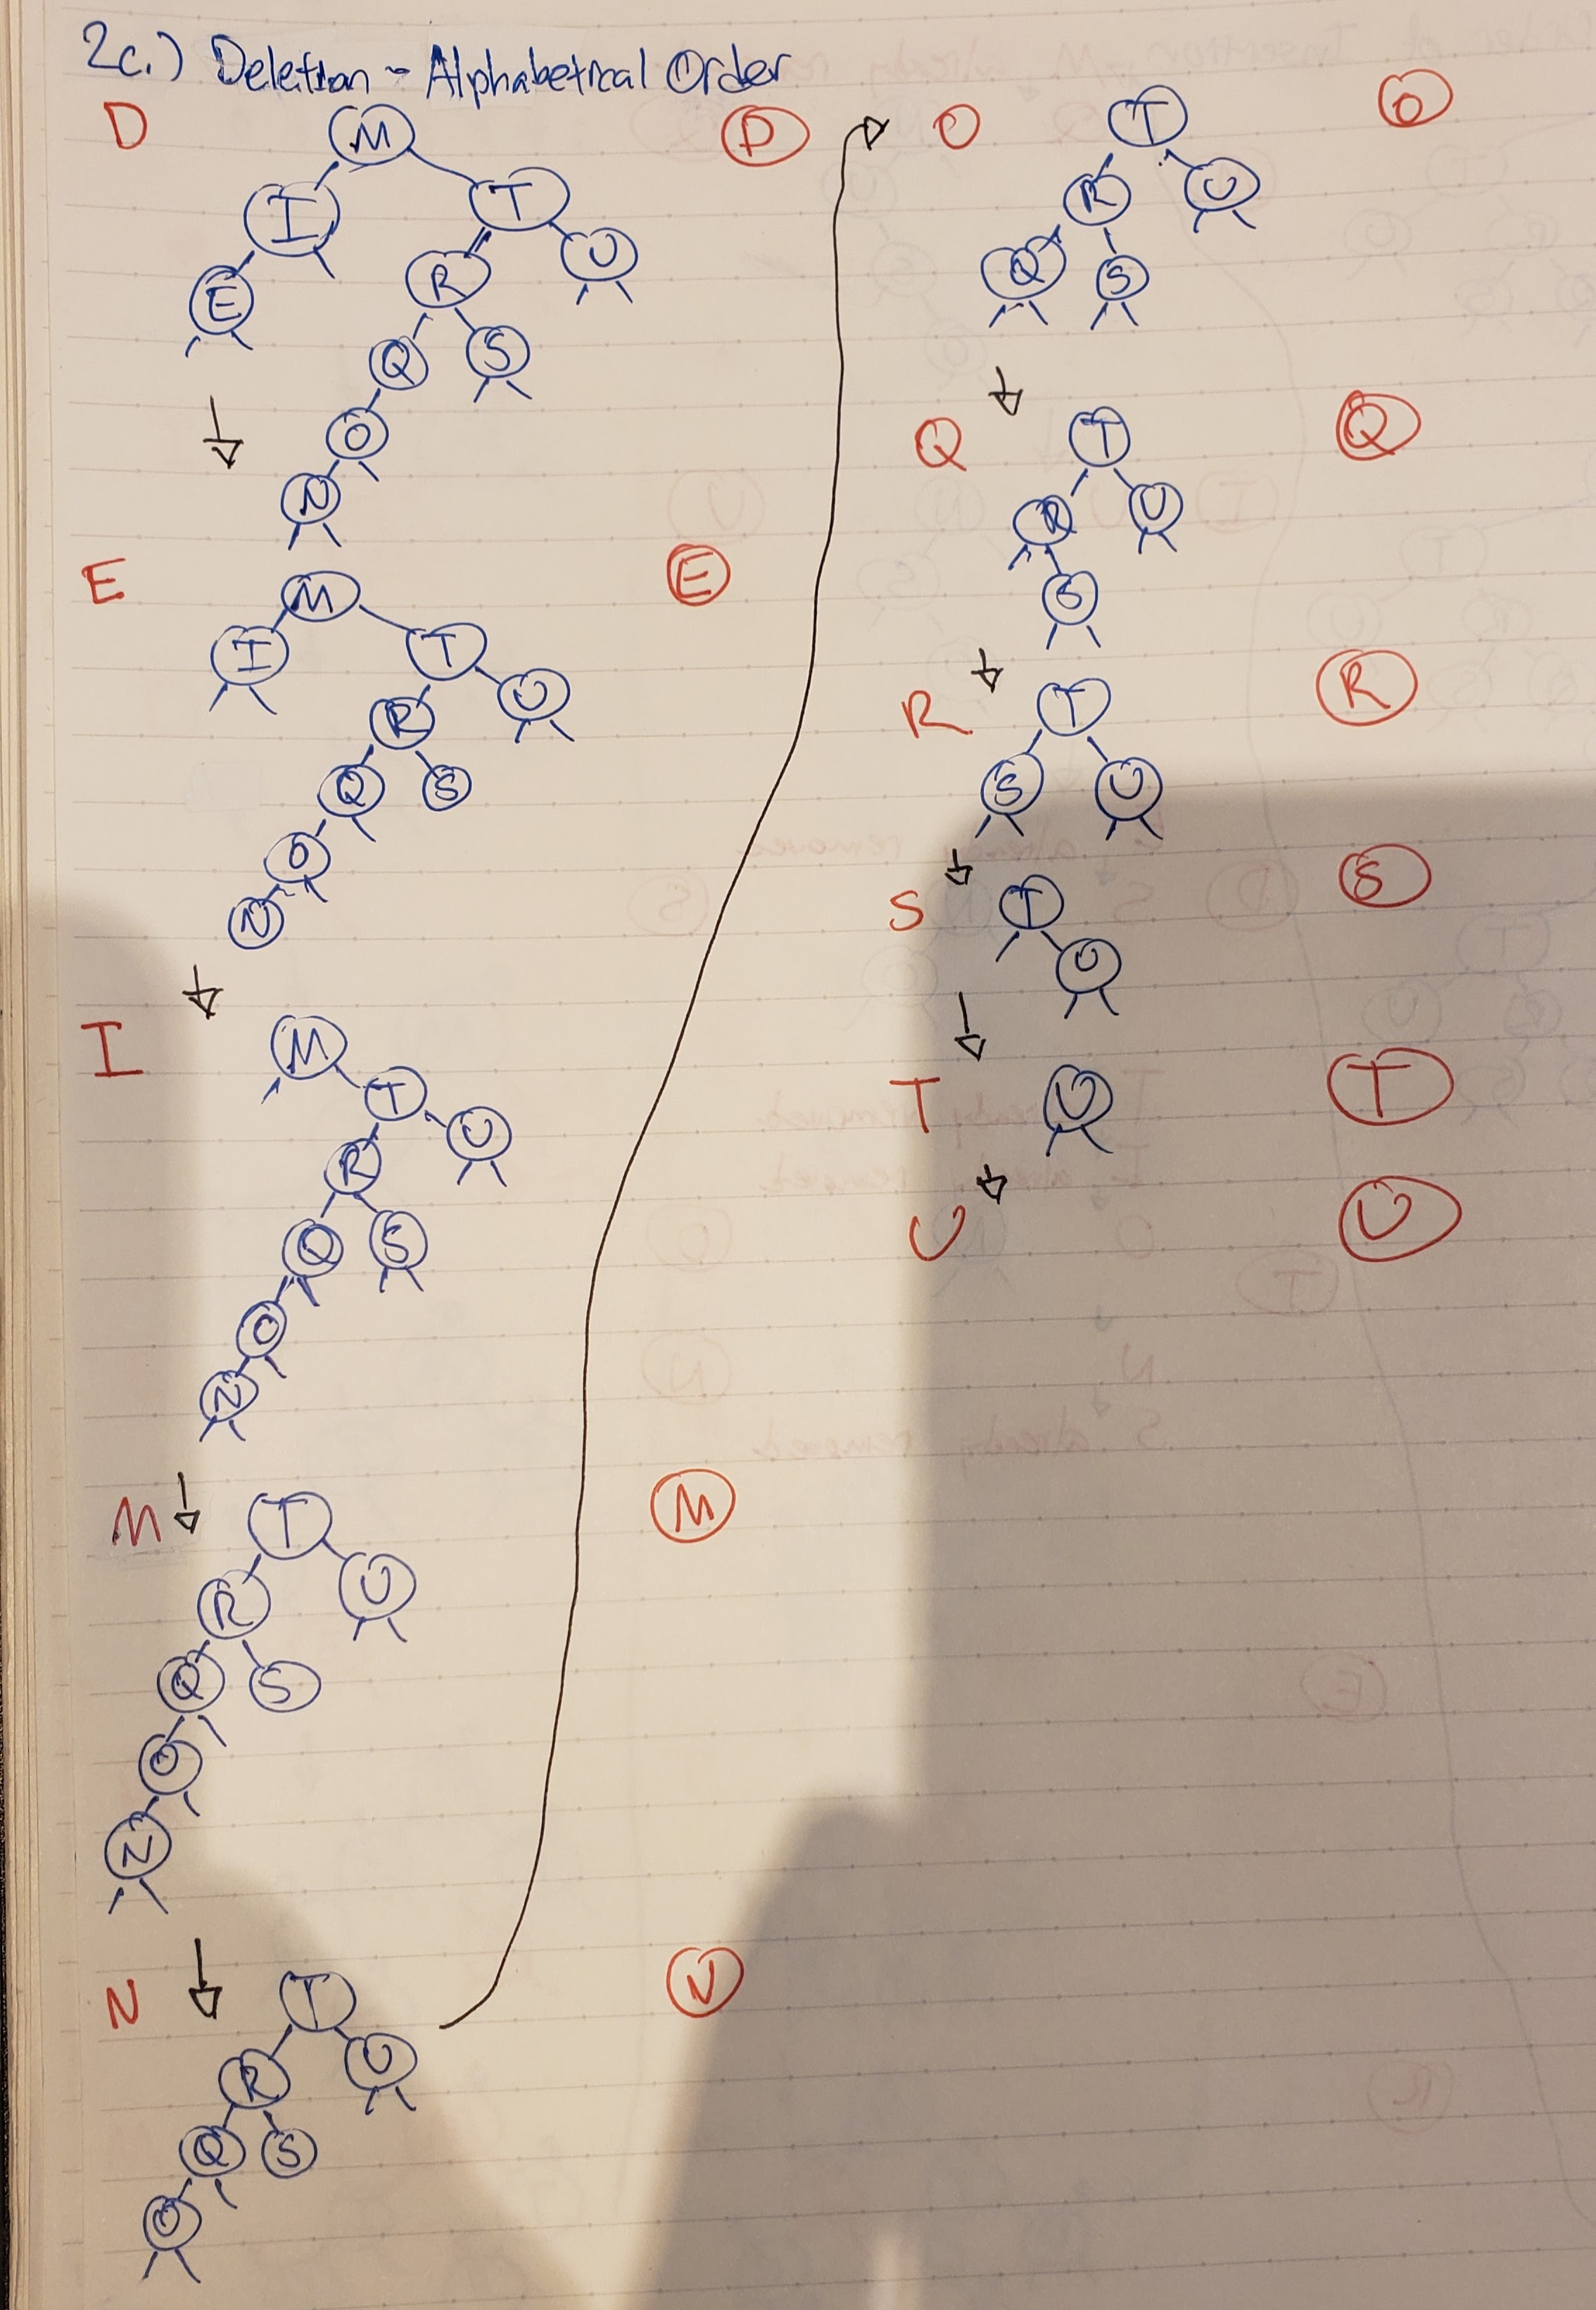 2c.) Deletion - Alphabetical Order
D M D
I T
E R U
Q S
O
N
E M E
I T
R U
Q S
O
N
I M
T
R U
Q S
O
N
M T M
R U
Q S
O
N
N T N
R U
Q S
O
O T O
R U
Q S
Q T Q
R U
S
R T R
S U
S T S
U
T U T
U U